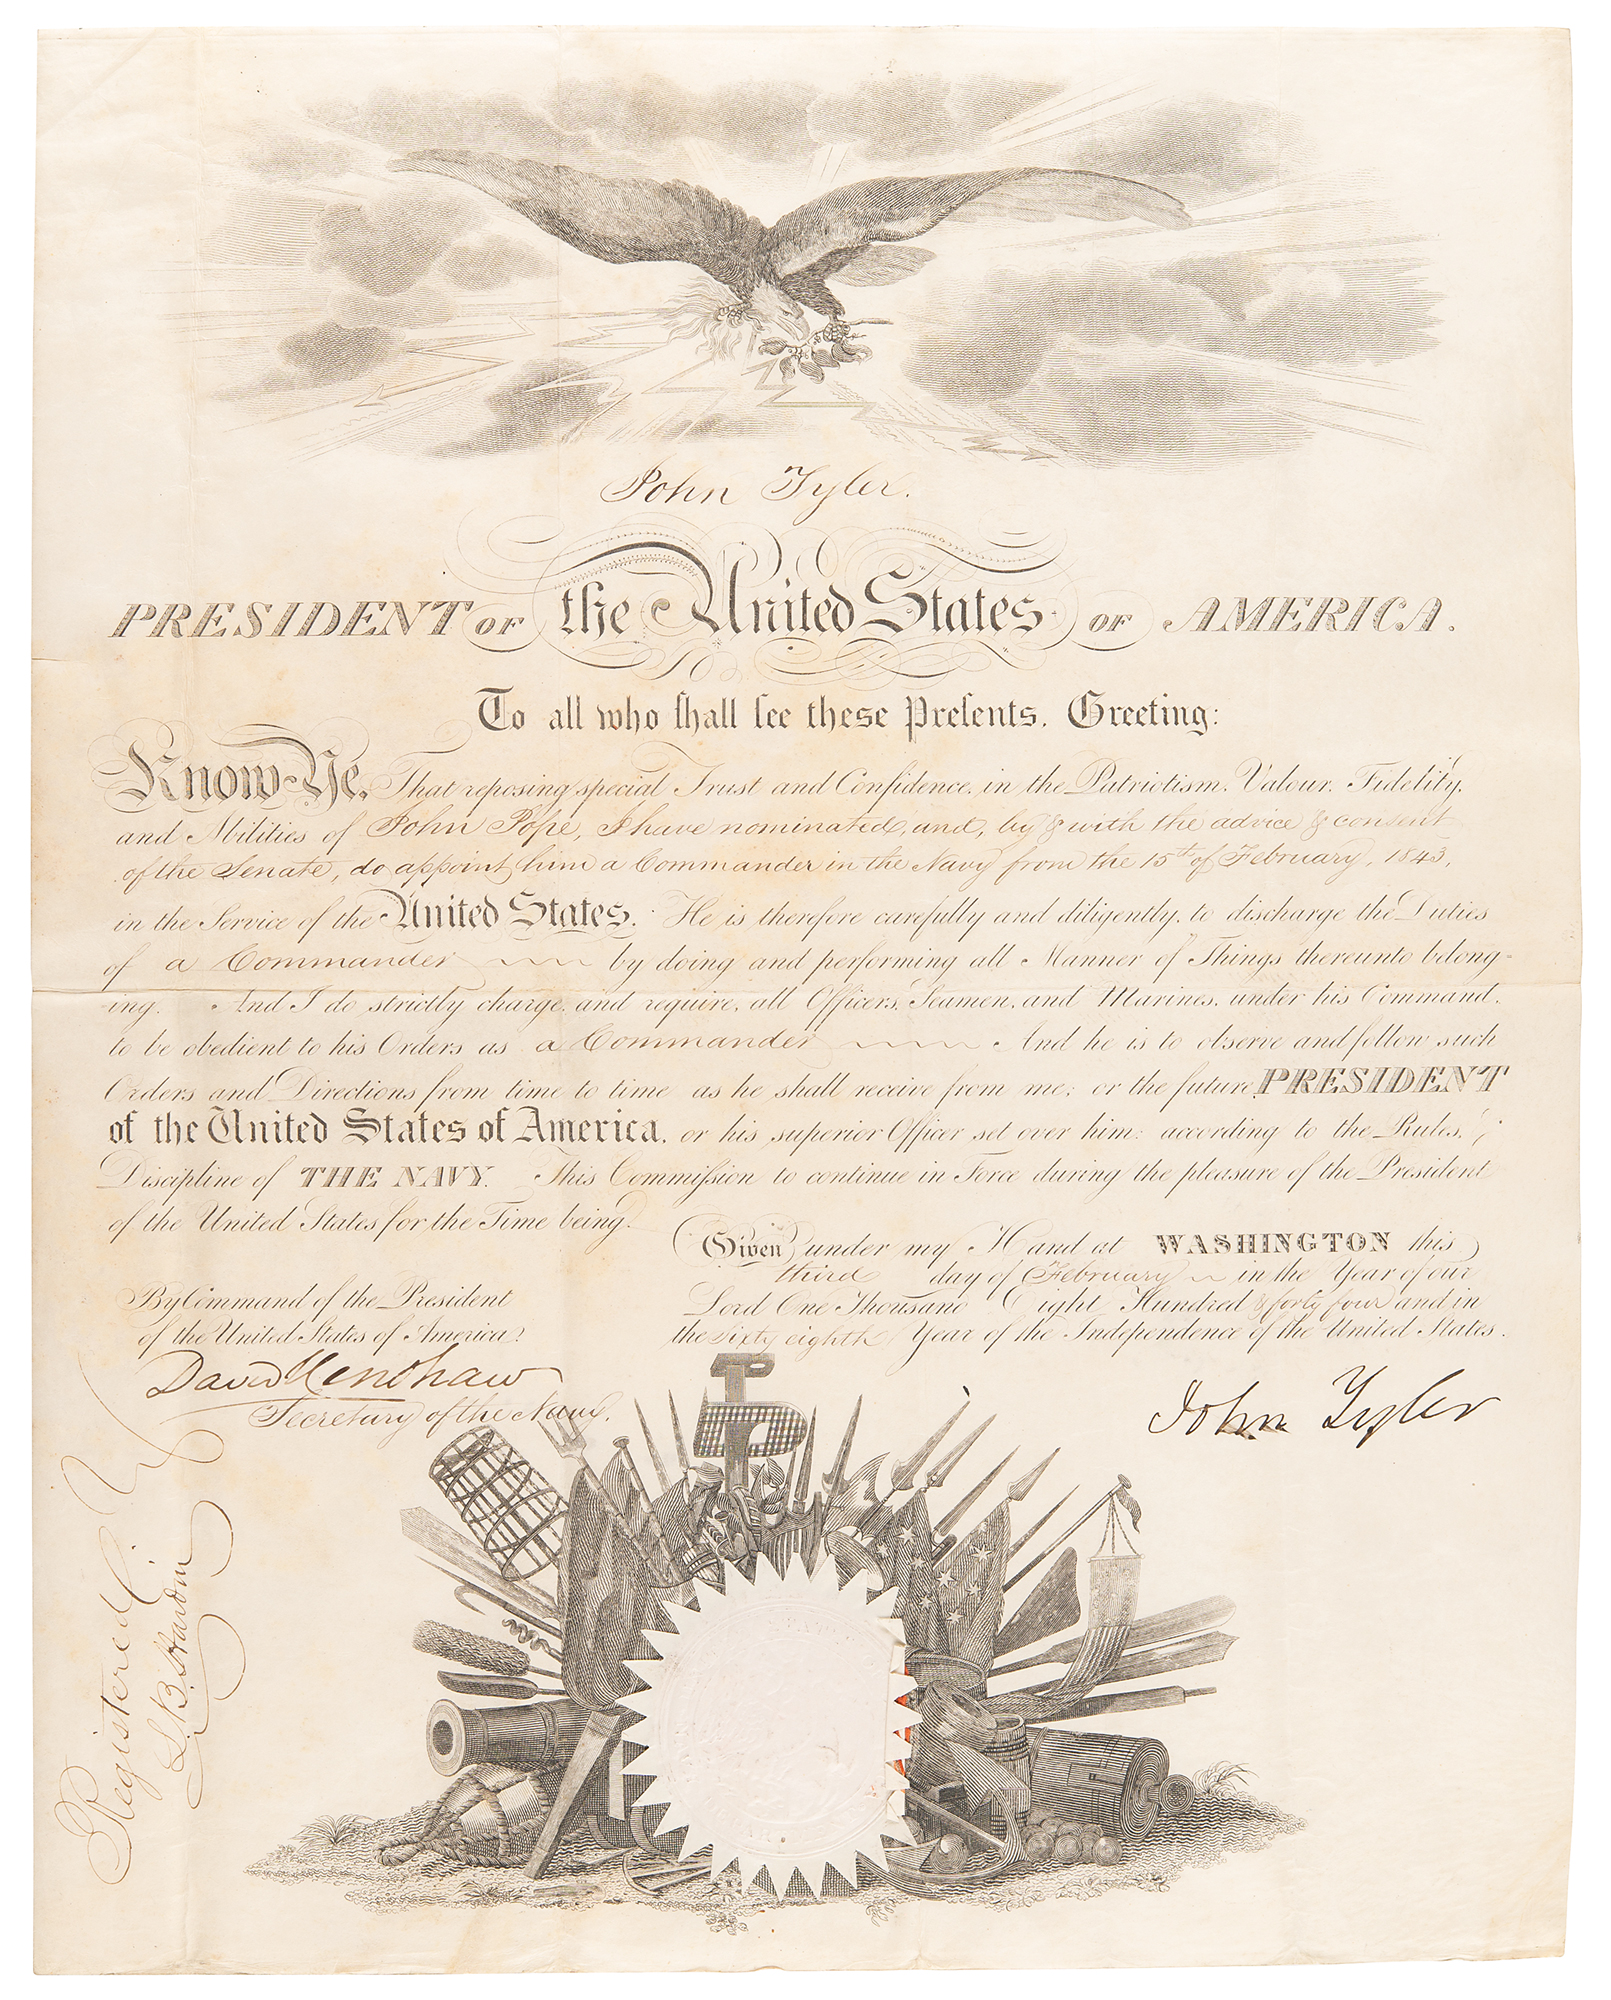 John Tyler.
PRESIDENT OF the United States OF AMERICA.
To all who ſhall ſee theſe Preſents, Greeting:
Know Ye, That reposing special Trust and Confidence in the Patriotism, Valour, Fidelity,
and Abilities of John Pope, I have nominated, and, by & with the advice & consent
of the Senate, do appoint him a Commander in the Navy from the 15th of February, 1843,
in the Service of the United States. He is therefore carefully and diligently to discharge the Duties
of a Commander by doing and performing all Manner of Things thereunto belong-
ing. And I do strictly charge and require, all Officers, Seamen, and Marines, under his Command,
to be obedient to his Orders as a Commander And he is to observe and follow such
Orders and Directions from time to time as he shall receive from me; or the future PRESIDENT
of the United States of America, or his superior Officer set over him: according to the Rules,
Discipline of THE NAVY. This Commiſsion to continue in Force during the pleasure of the President
of the United States for the Time being.
Given under my Hand at WASHINGTON this
third day of February in the Year of our
Lord One Thousand Eight Hundred & forty four and in
the Sixty eighth Year of the Independence of the United States.
By Command of the President
of the United States of America.
David Henshaw
Secretary of the Navy.
John Tyler
Registered
L. B. Hardin